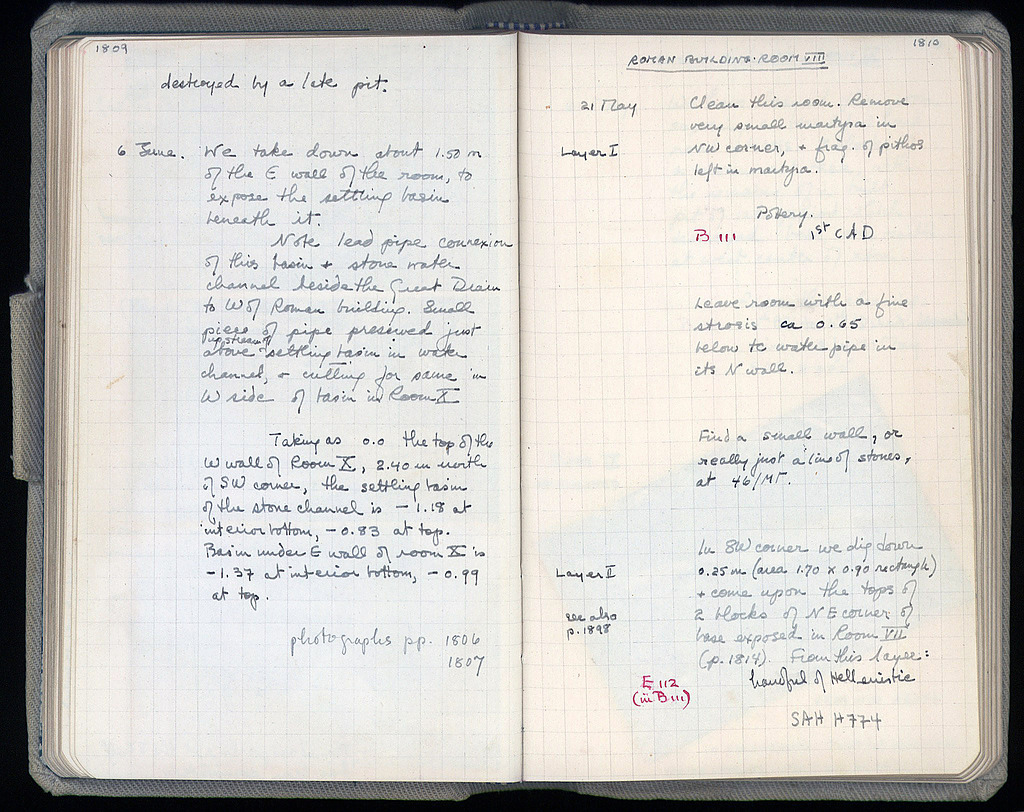 1809
destroyed by a late pit.
6 June. We take down about 1.50 m
of the E wall of the room, to
expose the settling basin
beneath it.
Note lead pipe connexion
of this basin + stone water
channel beside the Great Drain
to W of Roman building. Small
piece of pipe preserved just
upstream of
above settling basin in water
channel, + cutting for same in
W side of basin in Room X
Taking as 0.0 the top of the
W wall of Room X, 2.40 m north
of SW corner, the settling basin
of the stone channel is - 1.18 at
interior bottom, - 0.83 at top.
Basin under E wall of room X is
- 1.37 at interior bottom, - 0.99
at top.
photographs pp. 1806
1807
1810
ROMAN BUILDING. ROOM VIII
21 May Clean this room. Remove
very small martyra in
Layer I NW corner, + frag. of pithos
left in martyra.
Pottery.
B 111 1st C AD
Leave room with a fine
strosis ca 0.65
below tc water pipe in
its N wall.
Find a small wall, or
really just a line of stones,
at 46/ΜΓ.
In SW corner we dig down
Layer II 0.25 m (area 1.70 x 0.90 rectangle)
+ come upon the tops of
see also 2 blocks of NE corner of
p. 1898 base exposed in Room VII
(p. 1814). From this layer:
E 112 handful of Hellenistic
(in B 111)
SAH H774